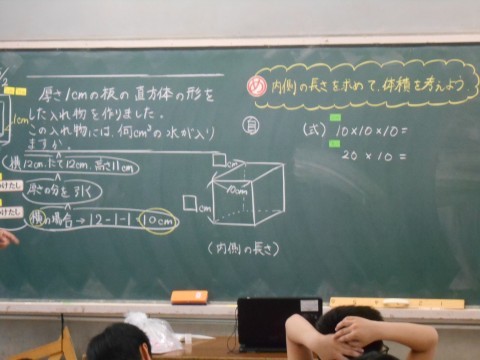 厚さ1cmの板の直方体の形を
した入れ物を作りました。
この入れ物には、何cm³の水が入り
ますか。
1cm
横12cm、たて12cm、高さ11cm
厚さの分を引く
横の場合→12-1-1=10cm
め 内側の長さを求めて、体積を考えよう。
自
(式) 10×10×10=
20×10=
□cm
10cm
□cm
(内側の長さ)